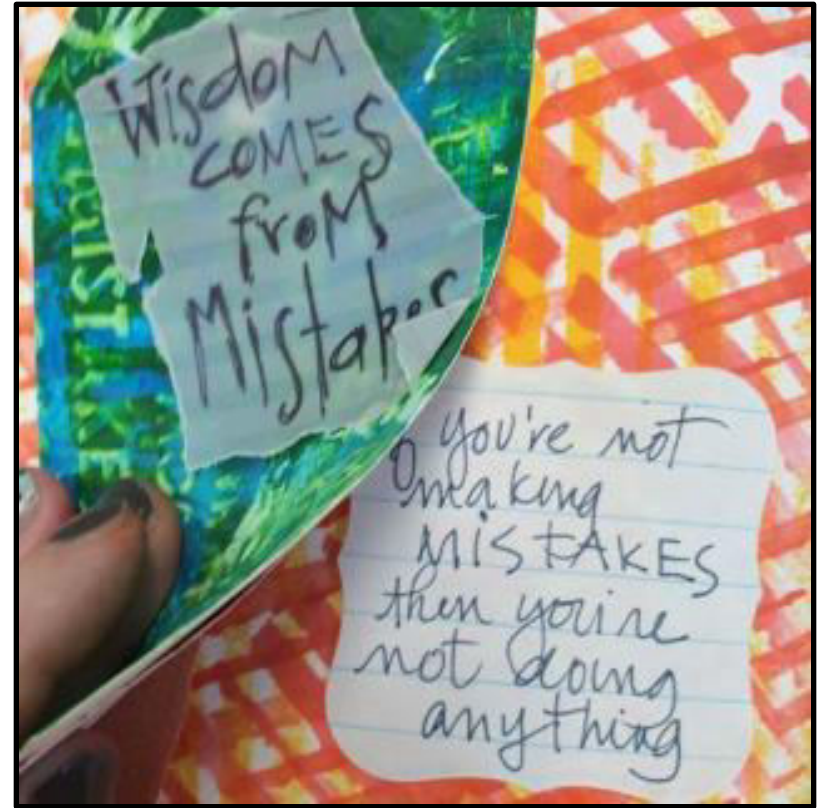 Wisdom
COMES
froM
Mistakes
you're not
making
MISTAKES
then you're
not doing
anything
MISTAKE